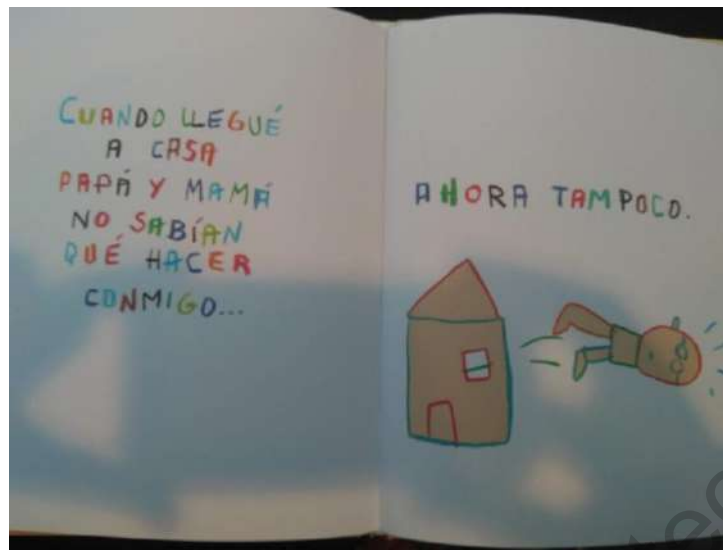 CUANDO LLEGUÉ
A CASA
PAPÁ Y MAMÁ
NO SABÍAN
QUÉ HACER
CONMIGO...
AHORA TAMPOCO.